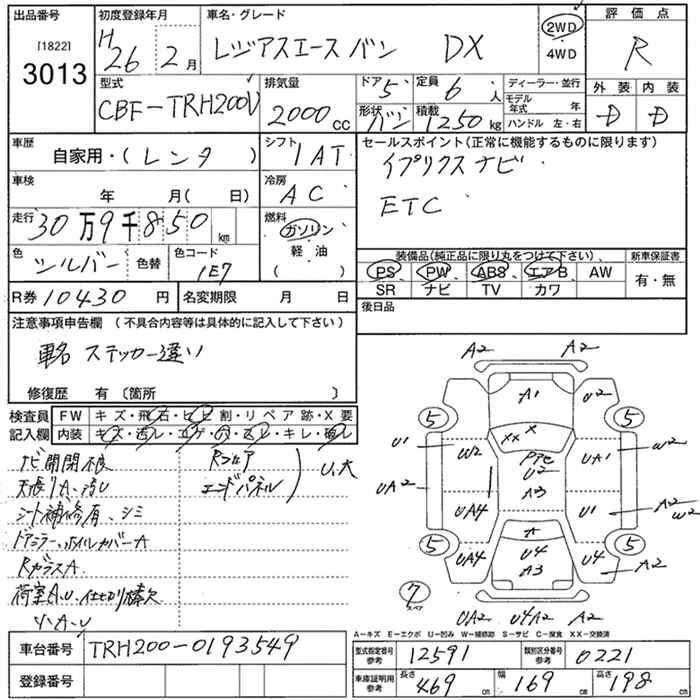 出品番号 初度登録年月 車名・グレード 評価点
[1822] 3013 H 26 2月 レジアスエース バン DX 2WD 4WD R
型式 CBF-TRH200V 排気量 2000cc ドア 5 定員 6人 ディーラー・並行 外装 内装
形状 バン 積載 1250kg モデル年式 年 ハンドル 左・右 D D
車歴 自家用・(レンタ) シフト 1AT セールスポイント(正常に機能するものに限ります)
イプリクスナビ
ETC
車検 年 月(日) 冷房 AC
走行 30万9千850km 燃料 ガソリン 軽油 ( )
色 シルバー 色替 色コード 1E7
装備品(純正品に限り丸をつけて下さい)、 新車保証書
PS PW ABS エアB AW 有・無
SR ナビ TV カワ
R券 10430円 名変期限 月 日 後日品
注意事項申告欄 (不具合内容等は具体的に記入して下さい)
車名 ステッカー違い
修復歴 有 〔箇所 〕
検査員記入欄 FW キズ・飛石・ヒビ割・リペア跡・X要
内装 キズ・汚レ・コゲ・穴・スレ・キレ・破レ
ナビ開閉不良 Rフロア
天張りA、汚U エンドパネル U、大
シート補修有、シミ
ドアミラー、ホイルカバーA
RガラスA
荷室A、U、仕切り棒欠
リ、A、U
A2 A2
A1 U2
5 5
XX X
U1 W2 UA1 W2
U2
UA2 A3
UA4 U1 A2 W2
A
5 UA4 U4 U4 5
A3 A2
7 スペア
UA2 U4A2 A2
A-キズ E-エクボ U-凹み W-補修跡 S-サビ C-腐食 XX-交換済
車台番号 TRH200-0193549
登録番号
型式指定番号 参考 12591 類別区分番号 参考 0221
車庫証明用 参考 長さ 469cm 幅 169cm 高さ 198cm